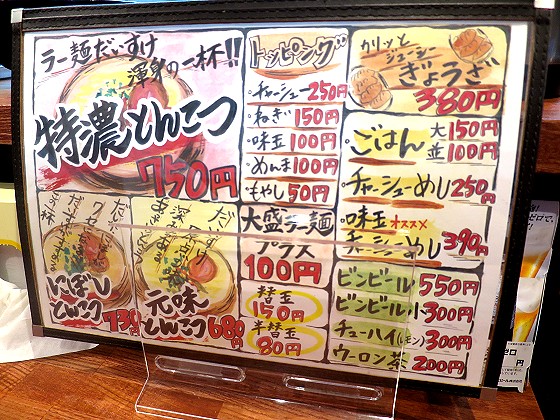 ラー麺だいすけ
渾身の一杯!!
特濃とんこつ
750円
にぼし
とんこつ
730円
元味
とんこつ
680円
トッピング
・チャーシュー 250円
・ねぎ 150円
・味玉 100円
・めんま 100円
・もやし 50円
大盛ラー麺
プラス
100円
替玉
150円
半替玉
80円
カリッと
ジューシー
ぎょうざ
380円
・ごはん 大 150円
並 100円
・チャーシューめし 250円
・味玉 オススメ
チャーシューめし 390円
ビンビール 550円
ビンビール小 300円
チューハイ(レモン) 300円
ウーロン茶 200円